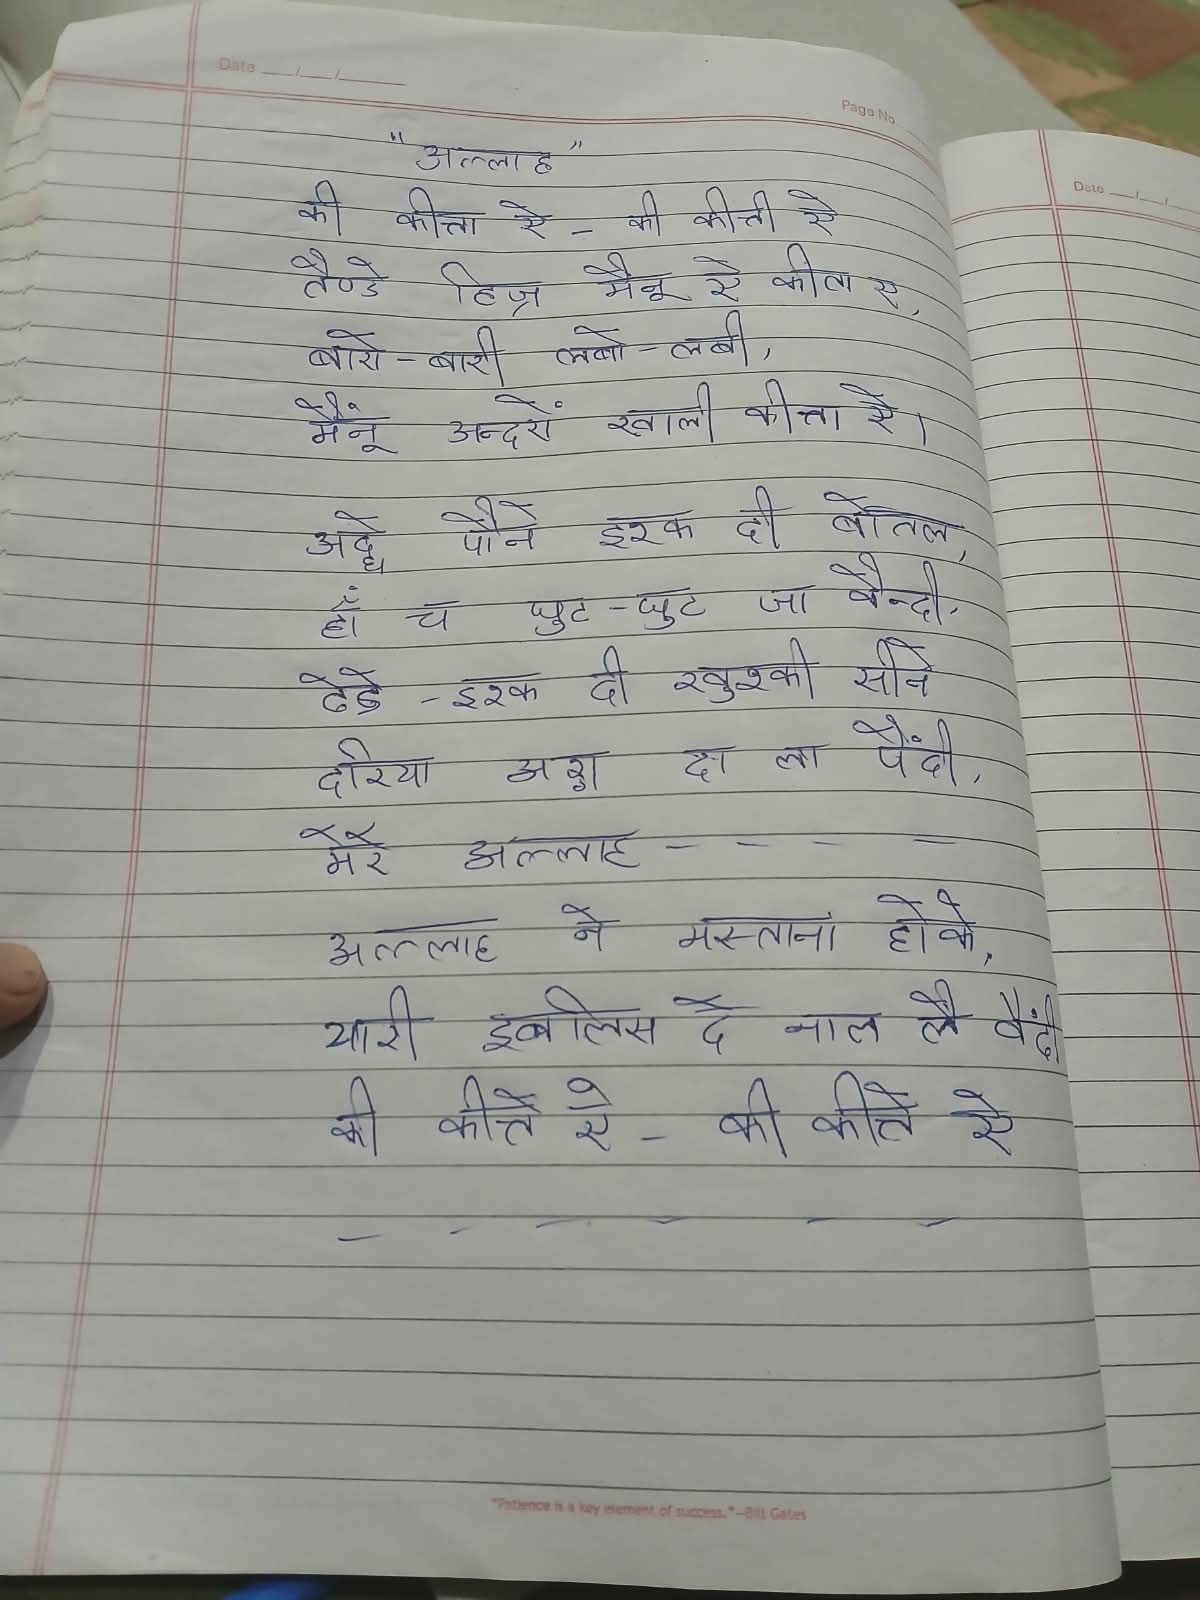 Date __/__/____
Page No
Date __/__/
"अल्लाह"
की कीत्ता ऐ - की कीत्ती ऐ
तैण्डे हिज्र मैनू ऐ कीता ए,
बारो-बारी लबो-लबी,
मैंनू अन्दरों खाली कीत्ता ऐ।
अद्धे पौने इश्क दी बोतल,
हाँ च घुट-घुट जा वैन्दी,
ढेडे - इश्क दी खुश्की सीने
दरिया अश्रु दा ला पैंदी,
मेरे अल्लाह - - - -
अल्लाह ने मस्ताना होके,
यारी इबलिस दे नाल लै वैंदी
की कीत्ते ऐ - की कीत्ते ऐ
- - - - - -
"Patience is a key element of success."–Bill Gates